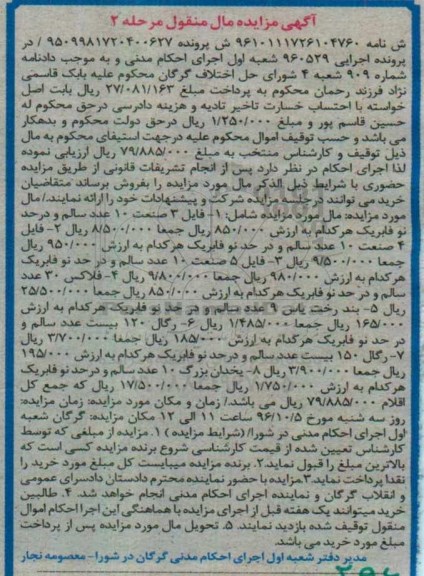 آگهی مزایده مال منقول مرحله ۲
ش نامه ۹۶۱۰۱۱۱۷۲۶۱۰۴۷۶۰ ش پرونده ۹۵۰۹۹۸۱۷۲۰۴۰۰۶۲۷ / در
پرونده اجرایی ۹۶۰۵۲۹ شعبه اول اجرای احکام مدنی و به موجب دادنامه
شماره ۹۰۹ شعبه ۴ شورای حل اختلاف گرگان محکوم علیه بابک قاسمی
نژاد فرزند رحمان محکوم به پرداخت مبلغ ۲۷/۰۸۱/۱۶۳ ریال بابت اصل
خواسته با احتساب خسارت تاخیر تادیه و هزینه دادرسی درحق محکوم له
حسین قاسم پور و مبلغ ۱/۲۵۰/۰۰۰ ریال درحق دولت محکوم و بدهکار
می باشد و حسب توقیف اموال محکوم علیه درجهت استیفای محکوم به مال
ذیل توقیف و کارشناس منتخب به مبلغ ۷۹/۸۸۵/۰۰۰ ریال ارزیابی نموده
لذا اجرای احکام در نظر دارد پس از انجام تشریفات قانونی از طریق مزایده
حضوری با شرایط ذیل الذکر مال مورد مزایده را بفروش برساند متقاضیان
خرید می توانند درجلسه مزایده شرکت و پیشنهادات خود را ارائه نمایند./ مال
مورد مزایده: مال مورد مزایده شامل: ۱- فایل ۳ صنعت ۱۰ عدد سالم و درحد
نو فابریک هرکدام به ارزش ۸۵۰/۰۰۰ ریال جمعا ۸/۵۰۰/۰۰۰ ریال ۲- فایل
۴ صنعت ۱۰ عدد سالم و در حد نو فابریک هرکدام به ارزش ۹۵۰/۰۰۰ ریال
جمعا ۹/۵۰۰/۰۰۰ ریال ۳- فایل ۵ صنعت ۱۰ عدد سالم و در حد نو فابریک
هرکدام به ارزش ۹۸۰/۰۰۰ ریال جمعا ۹/۸۰۰/۰۰۰ ریال ۴- فلاکس ۳۰ عدد
سالم و در حد نو فابریک هرکدام به ارزش ۸۵۰/۰۰۰ ریال جمعا ۲۵/۵۰۰/۰۰۰
ریال ۵- بند رخت یاس ۹ عدد سالم و در حد نو فابریک هرکدام به ارزش
۱۶۵/۰۰۰ ریال جمعا ۱/۴۸۵/۰۰۰ ریال ۶- رگال ۱۲۰ بیست عدد سالم و
در حد نو فابریک هرکدام به ارزش ۱۸۵/۰۰۰ ریال جمعا ۳/۷۰۰/۰۰۰ ریال
۷- رگال ۱۵۰ بیست عدد سالم و درحد نو فابریک هرکدام به ارزش ۱۹۵/۰۰۰
ریال جمعا ۳/۹۰۰/۰۰۰ ریال ۸- یخدان بزرگ ۱۰ عدد سالم و درحد نو فابریک
هرکدام به ارزش ۱/۷۵۰/۰۰۰ ریال جمعا ۱۷/۵۰۰/۰۰۰ ریال که جمع کل
اقلام ۷۹/۸۸۵/۰۰۰ ریال می باشد./ زمان و مکان مورد مزایده: زمان مزایده:
روز سه شنبه مورخ ۹۶/۱۰/۵ ساعت ۱۱ الی ۱۲ مکان مزایده: گرگان شعبه
اول اجرای احکام مدنی در شورا/ (شرایط مزایده ) ۱. مزایده از مبلغی که توسط
کارشناس تعیین شده از قیمت کارشناسی شروع برنده مزایده کسی است که
بالاترین مبلغ را قبول نماید.۲. برنده مزایده میبایست کل مبلغ مورد خرید را
نقدا پرداخت نماید.۳.مزایده با حضور نماینده محترم دادستان دادسرای عمومی
و انقلاب گرگان و نماینده اجرای احکام مدنی انجام خواهد شد. ۴. طالبین
خرید میتوانند یک هفته قبل از اجرای مزایده با هماهنگی این اجرا احکام اموال
منقول توقیف شده بازدید نمایند. ۵. تحویل مال مورد مزایده پس از پرداخت
مبلغ مورد خرید می باشد.
مدیر دفتر شعبه اول اجرای احکام مدنی گرگان در شورا - معصومه نجار